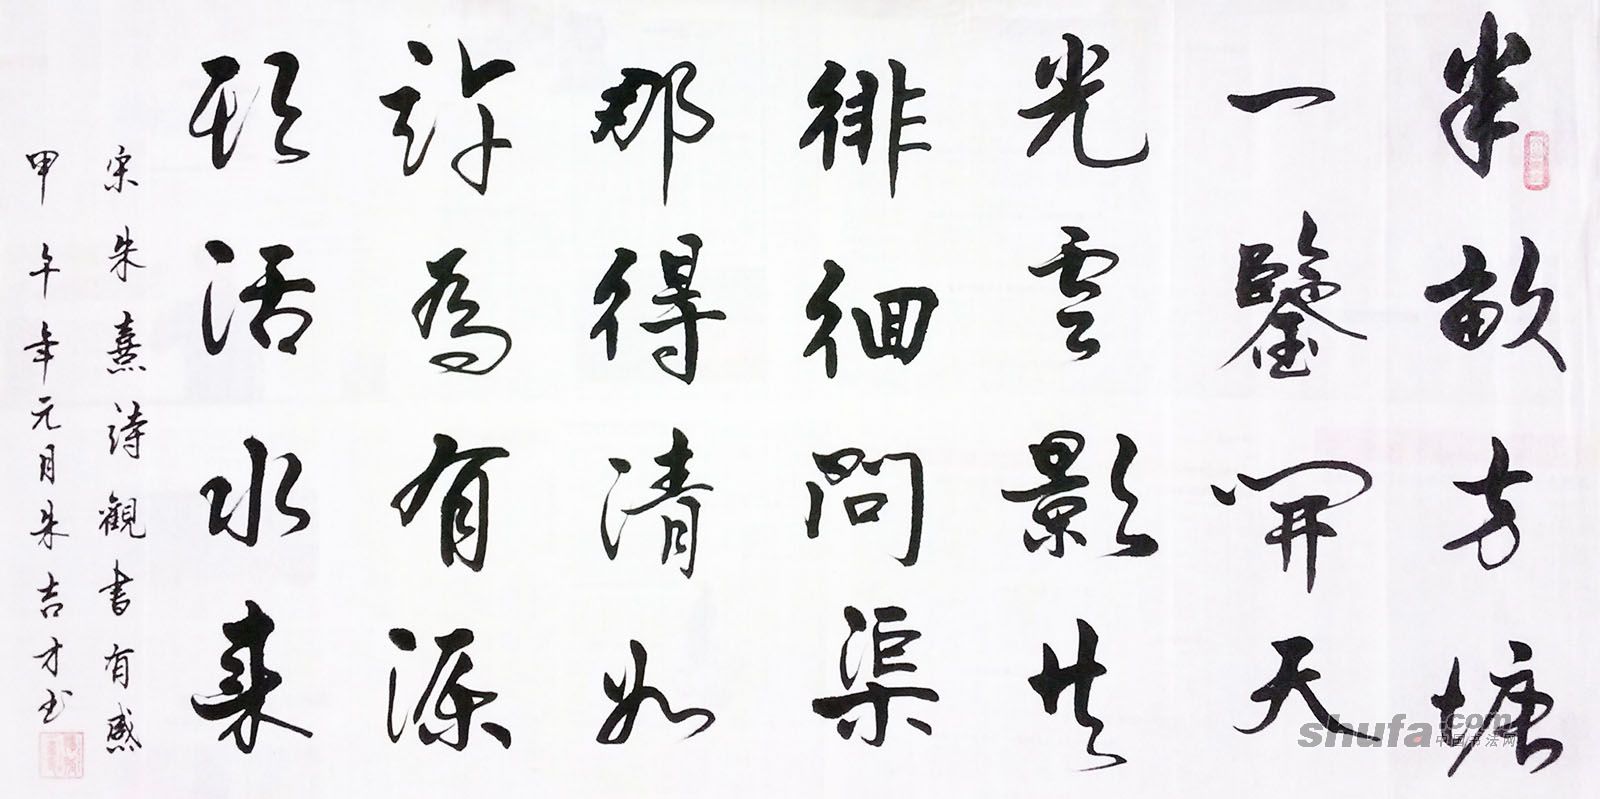 半畝方塘
一鑒開天
光雲影共
徘徊問渠
那得清如
許為有源
頭活水來
宋朱熹詩觀書有感
甲午年元月朱吉才书
shufa.com
中国书法网